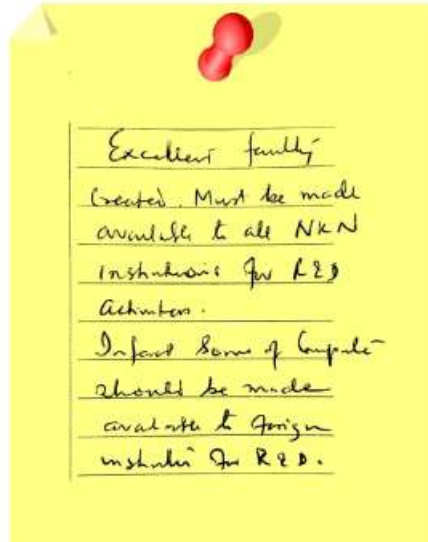 Excellent facility
Created. Must be made
available to all NKN
institutions for R&D
activities.
Infact Some of Compute
should be made
available to foreign
institutes for R&D.